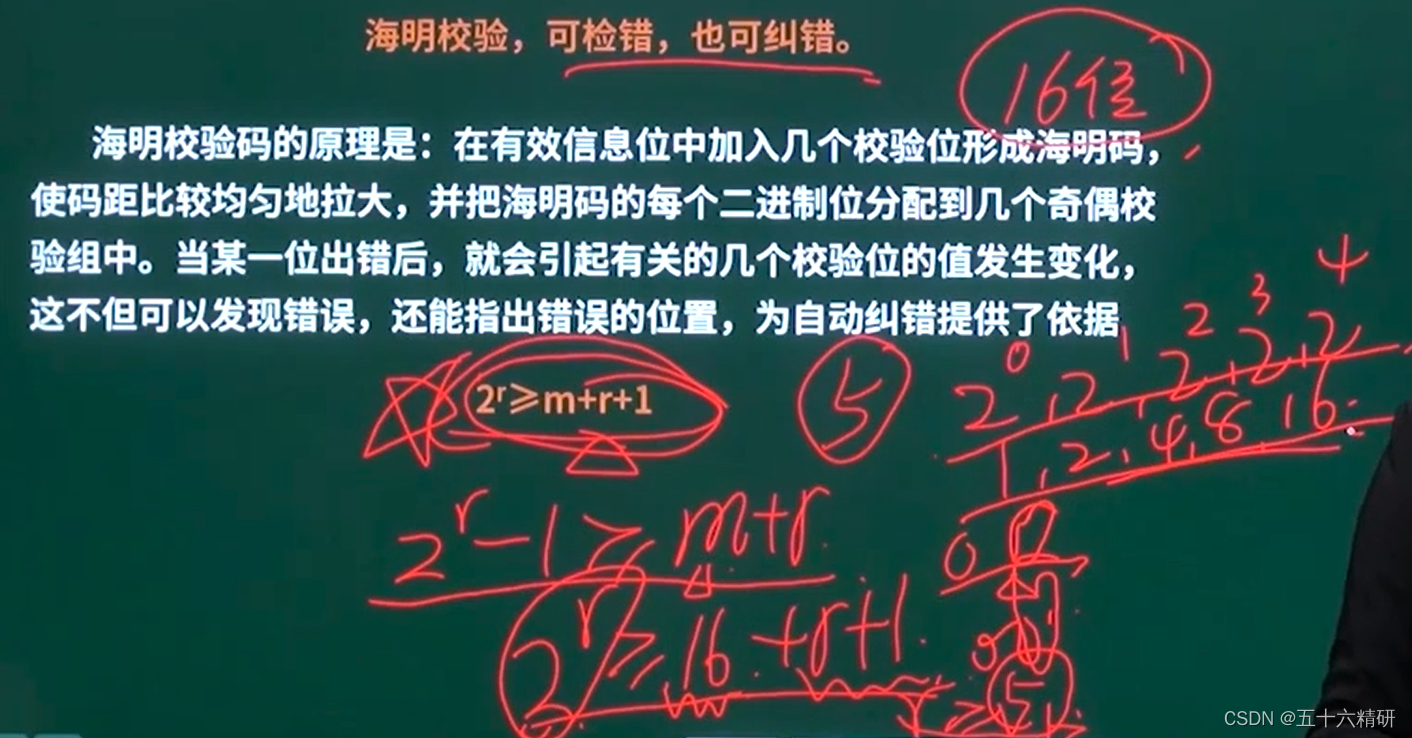 海明校验，可检错，也可纠错。
16位
海明校验码的原理是：在有效信息位中加入几个校验位形成海明码，
使码距比较均匀地拉大，并把海明码的每个二进制位分配到几个奇偶校
验组中。当某一位出错后，就会引起有关的几个校验位的值发生变化，
这不但可以发现错误，还能指出错误的位置，为自动纠错提供了依据
2⁰,2¹,2²,2³,2⁴
2ʳ≥m+r+1
5
1,2,4,8,16.
2ʳ-1≥m+r.
2ʳ≥16+r+1.
r≥5
CSDN @五十六精研